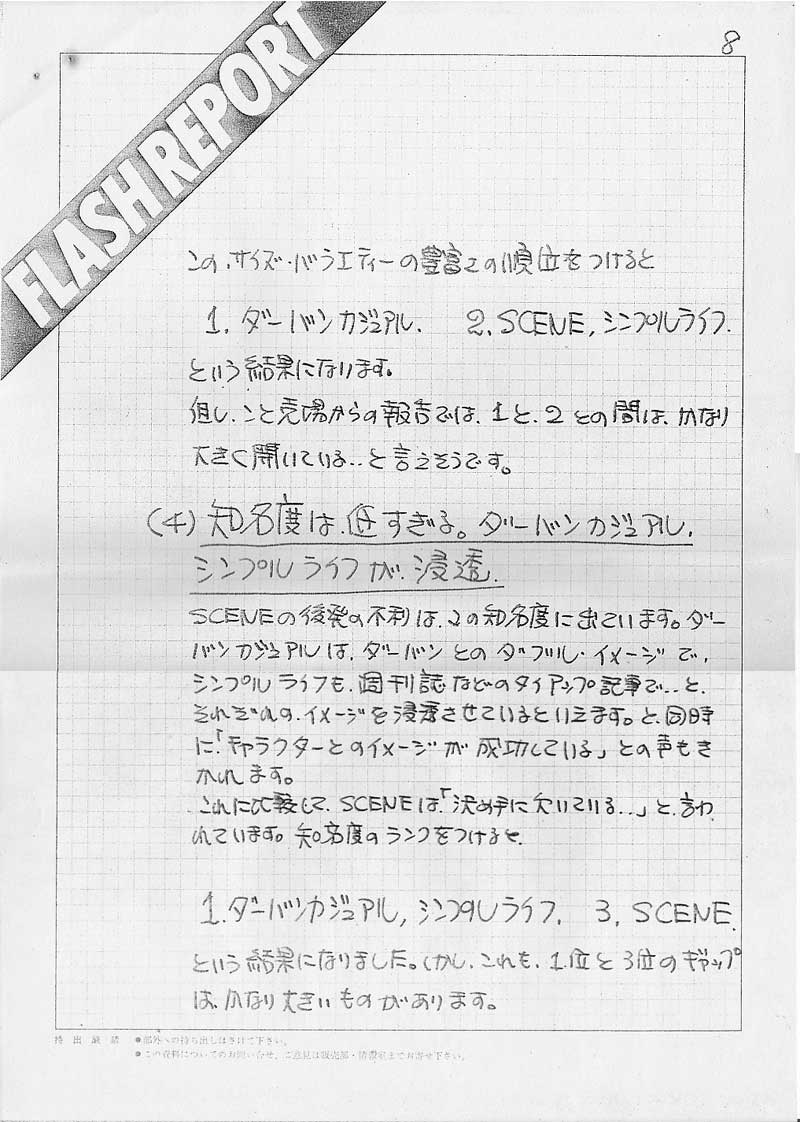 8
FLASH REPORT
この、サイズ・バラエティーの豊富さの順位をつけると
1. ダーバンカジュアル. 2. SCENE, シンプルライフ.
という結果になります。
但し、こと売場からの報告では、1と、2との間は、かなり
大きく開いている‥と言えそうです。
(4) 知名度は、低すぎる。ダーバンカジュアル,
シンプルライフが、浸透.
SCENEの後発の不利は、この知名度に出ています。ダー
バンカジュアルは、ダーバンとのダブル・イメージで,
シンプルライフも、週刊誌などのタイアップ記事で‥と、
それぞれの、イメージを浸透させているといえます。と、同時
に「キャラクターとのイメージが成功している」との声もき
かれます。
これに比較して、SCENEは、「決め手に欠いている‥」と、言わ
れています。知名度のランクをつけると、
1. ダーバンカジュアル, シンプルライフ. 3. SCENE.
という結果になりました。しかし、これも、1位と3位のギャップ
は、かなり大きいものがあります。
持出厳禁 ●部外への持ち出しはさけて下さい。
●この資料についてのお問い合せ、ご意見は販売部・情報室までお寄せ下さい。